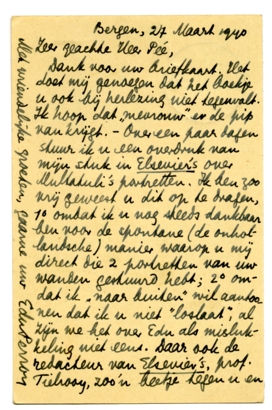 Bergen, 27 Maart 1940
Zeer geachte Heer Pée,
Dank voor uw briefkaart. Het
doet mij genoegen dat het boekje
u ook bij herlezing niet tegenvalt.
Ik hoop dat „mevrouw” er de pip
van krijgt. – Over een paar dagen
stuur ik u een overdruk van
mijn stuk in Elsevier's over
Multatuli's portretten. Ik ben zoo
vrij geweest u dit op te dragen,
1º omdat ik u nog steeds dankbaar
ben voor de spontane (de onhol-
landsche) manier waarop u mij
direct die 2 portretten van uw
wanden gestuurd hebt; 2º om-
dat ik „naar buiten” wil aantoo-
nen dat ik u niet “loslaat”, al
zijn we het over Edu als misluk-
keling niet eens. Daar ook de
redacteur van Elsevier's, prof.
Tielrooy, zoo'n beetje tegen u en
Met vriendelijke groeten, gaarne uw EduPerron